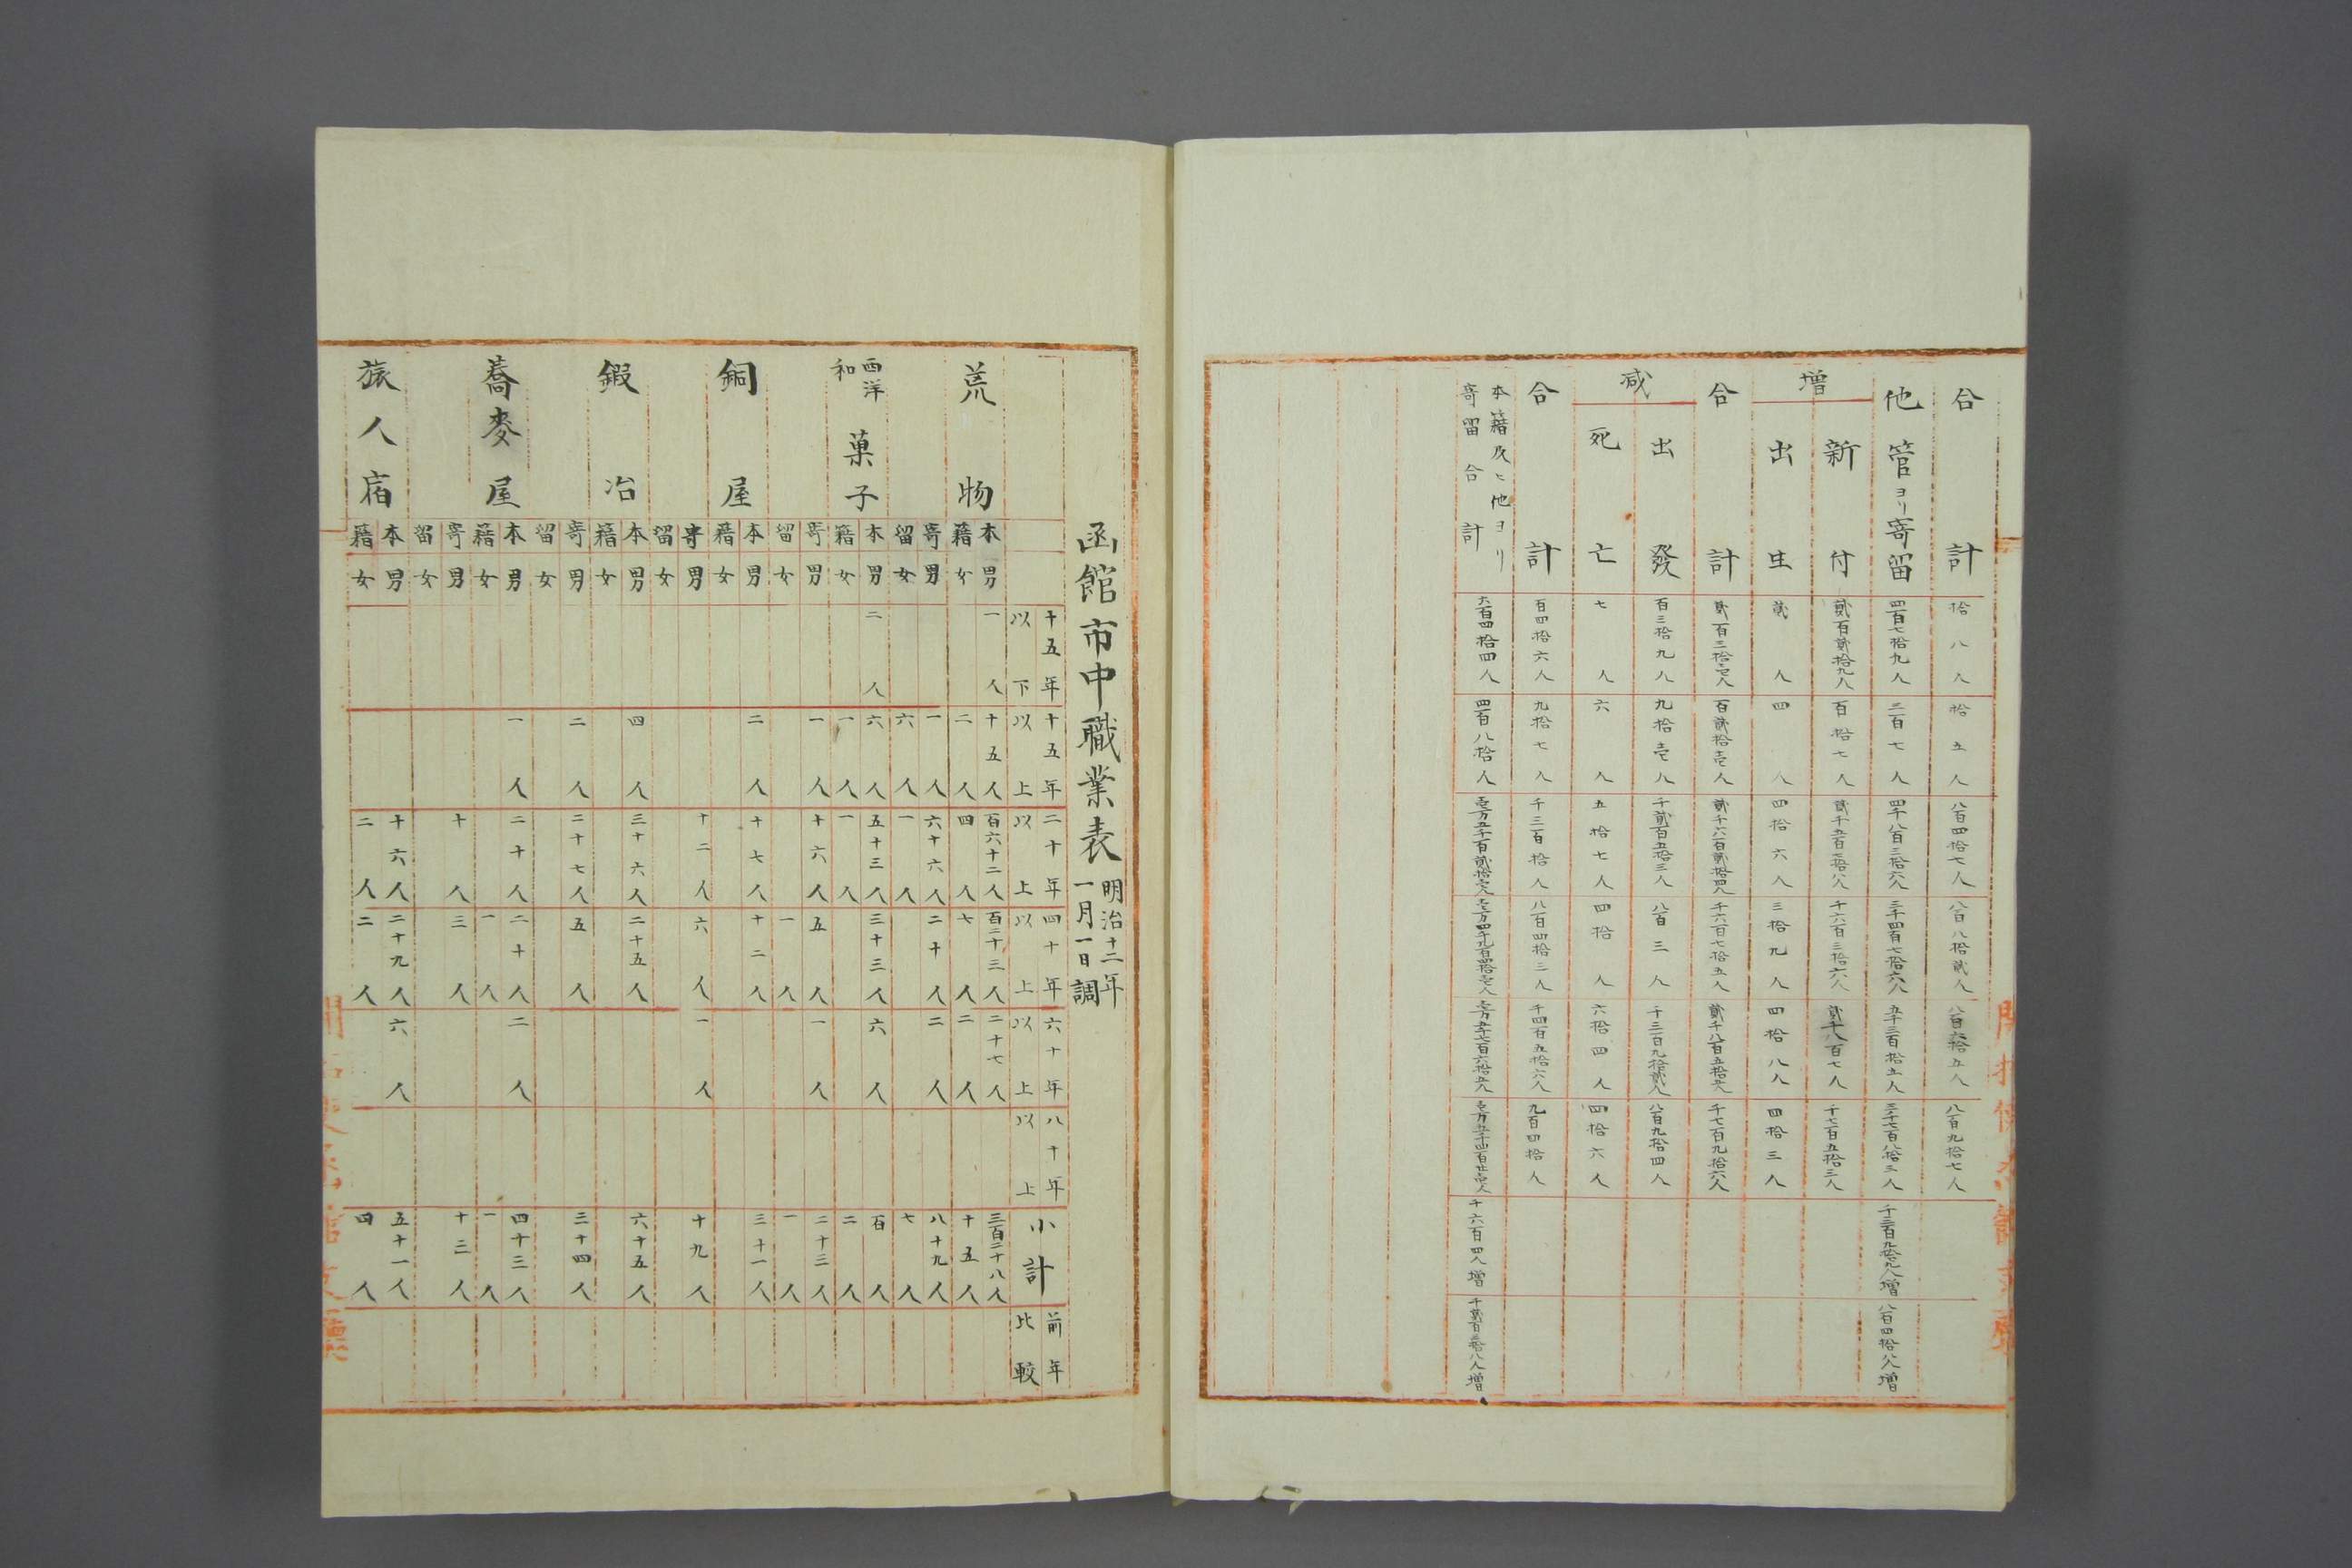 合計 拾八人 拾五人 八百四拾七人 八百八拾貳人 八百六拾五人 八百九拾七人
他管ヨリ寄留 四百七拾九人 三百七人 四千八百三拾六人 三千四百七拾六人 五千三百拾五人 三千七百八拾三人 千三百九拾九人増 八百四拾八人増
増
新付 貳百貳拾九人 百拾七人 貳千五百七拾八人 千六百三拾六人 貳千八百七人 千七百五拾三人
出生 貳人 四人 四拾六人 三拾九人 四拾八人 四拾三人
合計 貳百三拾壱人 百貳拾壱人 貳千六百貳拾四人 千六百七拾五人 貳千八百五拾五人 千七百九拾六人
減
出發 百三拾九人 九拾壱人 千貳百五拾三人 八百三人 千三百九拾貳人 八百九拾四人
死亡 七人 六人 五拾七人 四拾人 六拾四人 四拾六人
合計 百四拾六人 九拾七人 千三百拾人 八百四拾三人 千四百五拾六人 九百四拾人
本籍及ヒ他ヨリ
寄留合計
六百四拾四人 四百八拾人 壱万五千百貳拾壱人 壱万四千九百四拾壱人 壱万五千七百六拾五人 壱万五千四百廿壱人 千六百四人増 千貳百三拾八人増
函館市中職業表 明治十二年
一月一日調
十五年以下 十五年以上 二十年以上 四十年以上 六十年以上 八十年以上 小計 前年比較
荒物
本籍
男 一人 十五人 百六十二人 百二十三人 二十七人 三百二十八人
女 二人 四人 七人 二人 十五人
寄留
男 一人 六十六人 二十人 二人 八十九人
女 六人 一人 七人
西洋
和
菓子
本籍
男 二人 六人 五十三人 三十三人 六人 百人
女 一人 一人 二人
寄留
男 一人 十六人 五人 一人 二十三人
女 一人 一人
銅屋
本籍
男 二人 十七人 十二人 三十一人
女
寄留
男 十二人 六人 一人 十九人
女
鍜冶
本籍
男 四人 三十六人 二十五人 六十五人
女
寄留
男 二人 二十七人 五人 三十四人
女
蕎麥屋
本籍
男 一人 二十人 二十人 二人 四十三人
女 一人 一人
寄留
男 十人 三人 十三人
女
旅人宿
本籍
男 十六人 二十九人 六人 五十一人
女 二人 二人 四人